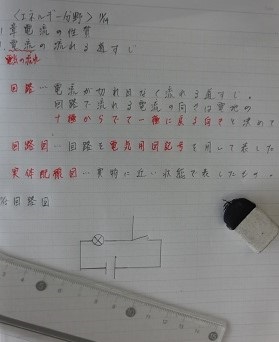 〈エネルギー分野〉
1章電流の性質
1.電流の流れる道すじ
電気の流れ
回路…電流が切れ目なく流れる道すじ。
回路で流れる電流の向きは電池の
+極からでて-極に入る向きと決めて
回路図…回路を電気用図記号を用いて表した
実体配線図…実物に近い状態で表したもの。
回路図